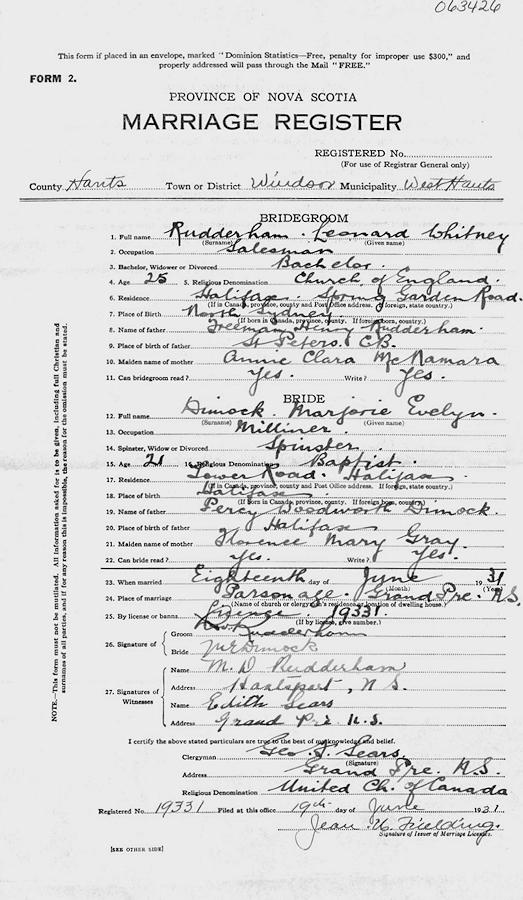 063426
This form if placed in an envelope, marked "Dominion Statistics—Free, penalty for improper use $300," and
properly addressed will pass through the Mail "FREE."
FORM 2.
PROVINCE OF NOVA SCOTIA
MARRIAGE REGISTER
REGISTERED No.
(For use of Registrar General only)
County Hants Town or District Windsor Municipality West Hants
BRIDEGROOM
1. Full name Rudderham. Leonard Whitney
(Surname) (Given name)
2. Occupation Salesman
3. Bachelor, Widower or Divorced Bachelor.
4. Age 25 5. Religious Denomination Church of England.
6. Residence Halifax. Spring Garden Road.
(If in Canada, province, county and Post Office address. If foreign, state country.)
7. Place of Birth North Sydney.
(If born in Canada, province, county. If foreign born, country.)
8. Name of father Freeman Henry Rudderham.
9. Place of birth of father St Peters. C.B.
10. Maiden name of mother Annie Clara McNamara
11. Can bridegroom read? Yes. Write? Yes.
BRIDE
12. Full name Dimock. Marjorie Evelyn.
(Surname) (Given name)
13. Occupation Milliner.
14. Spinster, Widow or Divorced Spinster.
15. Age 21 16. Religious Denomination Baptist.
17. Residence Tower Road. Halifax
(If in Canada, province, county and Post Office address. If foreign, state country.)
18. Place of birth Halifax
(If born in Canada, province, county. If foreign born, country.)
19. Name of father Percy Woodworth Dimock.
20. Place of birth of father Halifax
21. Maiden name of mother Florence Mary Gray.
22. Can bride read? Yes. Write? Yes.
23. When married Eighteenth day of June 1931
(Month) (Year)
24. Place of marriage Parsonage. Grand Pre. N.S.
(Name of church or clergyman's residence or location of dwelling house.)
25. By license or banns License 19331.
(If by license, give number.)
26. Signature of Groom Rudderham
Bride M E Dimock
27. Signatures of Witnesses
Name M. D Rudderham
Address Hantsport, N S.
Name Edith Sears
Address Grand Pré N.S.
I certify the above stated particulars are true to the best of my knowledge and belief.
Clergyman Geo. F. Sears
(Signature)
Address Grand Pre. N.S.
Religious Denomination United Ch. of Canada
Registered No. 19331 Filed at this office 19th day of June 1931
Jean U. Fielding.
Signature of Issuer of Marriage Licenses.
[SEE OTHER SIDE]
NOTE.—This form must not be mutilated. All information asked for is to be given, including full Christian and
surnames of all parties, and if for any reason this is impossible, the reason for the omission must be stated.